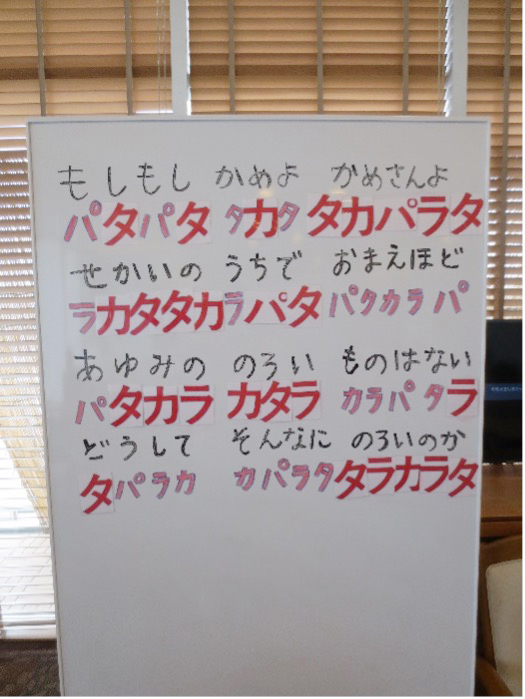 もしもし かめよ かめさんよ
パタパタ タカタ タカパラタ
せかいの うちで おまえほど
ラカタタカラパタ パタカラパ
あゆみの のろい ものはない
パタカラ カタラ カラパタラ
どうして そんなに のろいのか
タパラカ カパラタ タラカラタ